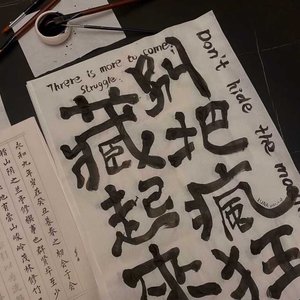 There is more to come.
Struggle.
Don't hide the mad
别把瘋狂
藏起来
永和九年岁在癸丑暮春之初会于会
稽山阴之兰亭修禊事也群贤毕至少
地有崇山峻岭茂林修竹